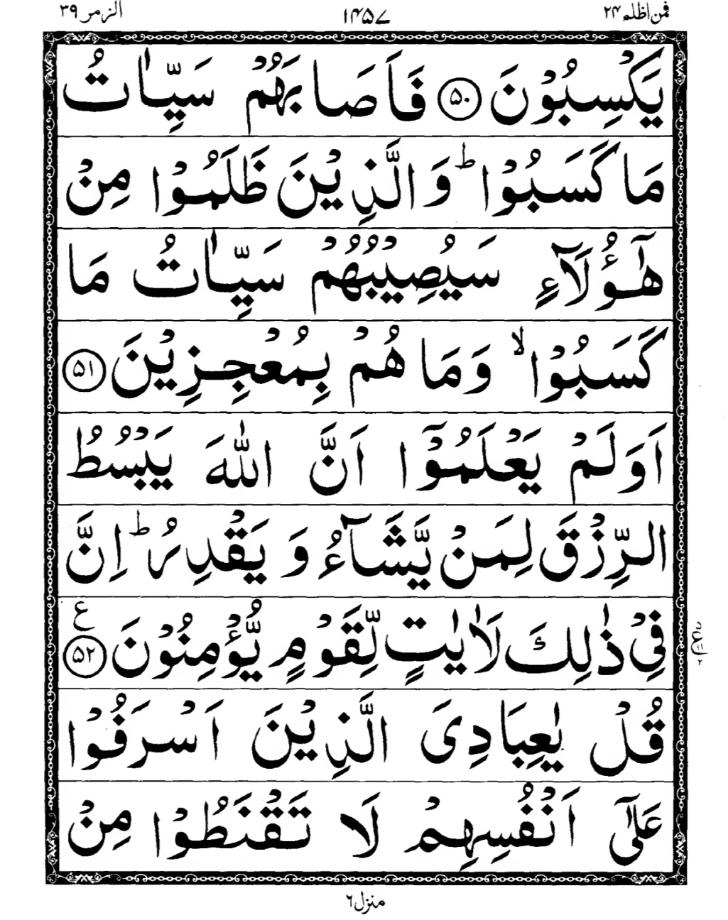 فمن اظلم ۲۴ ۱۴۵۷ الزمر ۳۹
يَكْسِبُوْنَ ﴿۵۰﴾ فَاَصَابَهُمْ سَيِّاٰتُ
مَا كَسَبُوْا ؕ وَالَّذِيْنَ ظَلَمُوْا مِنْ
هٰٓؤُلَآءِ سَيُصِيْبُهُمْ سَيِّاٰتُ مَا
كَسَبُوْا ۙ وَمَا هُمْ بِمُعْجِزِيْنَ ﴿۵۱﴾
اَوَلَمْ يَعْلَمُوْۤا اَنَّ اللّٰهَ يَبْسُطُ
الرِّزْقَ لِمَنْ يَّشَآءُ وَ يَقْدِرُ ؕ اِنَّ
فِيْ ذٰلِكَ لَاٰيٰتٍ لِّقَوْمٍ يُّؤْمِنُوْنَ ﴿۵۲﴾ ع
قُلْ يٰعِبَادِيَ الَّذِيْنَ اَسْرَفُوْا
عَلٰٓى اَنْفُسِهِمْ لَا تَقْنَطُوْا مِنْ
منزل ۶